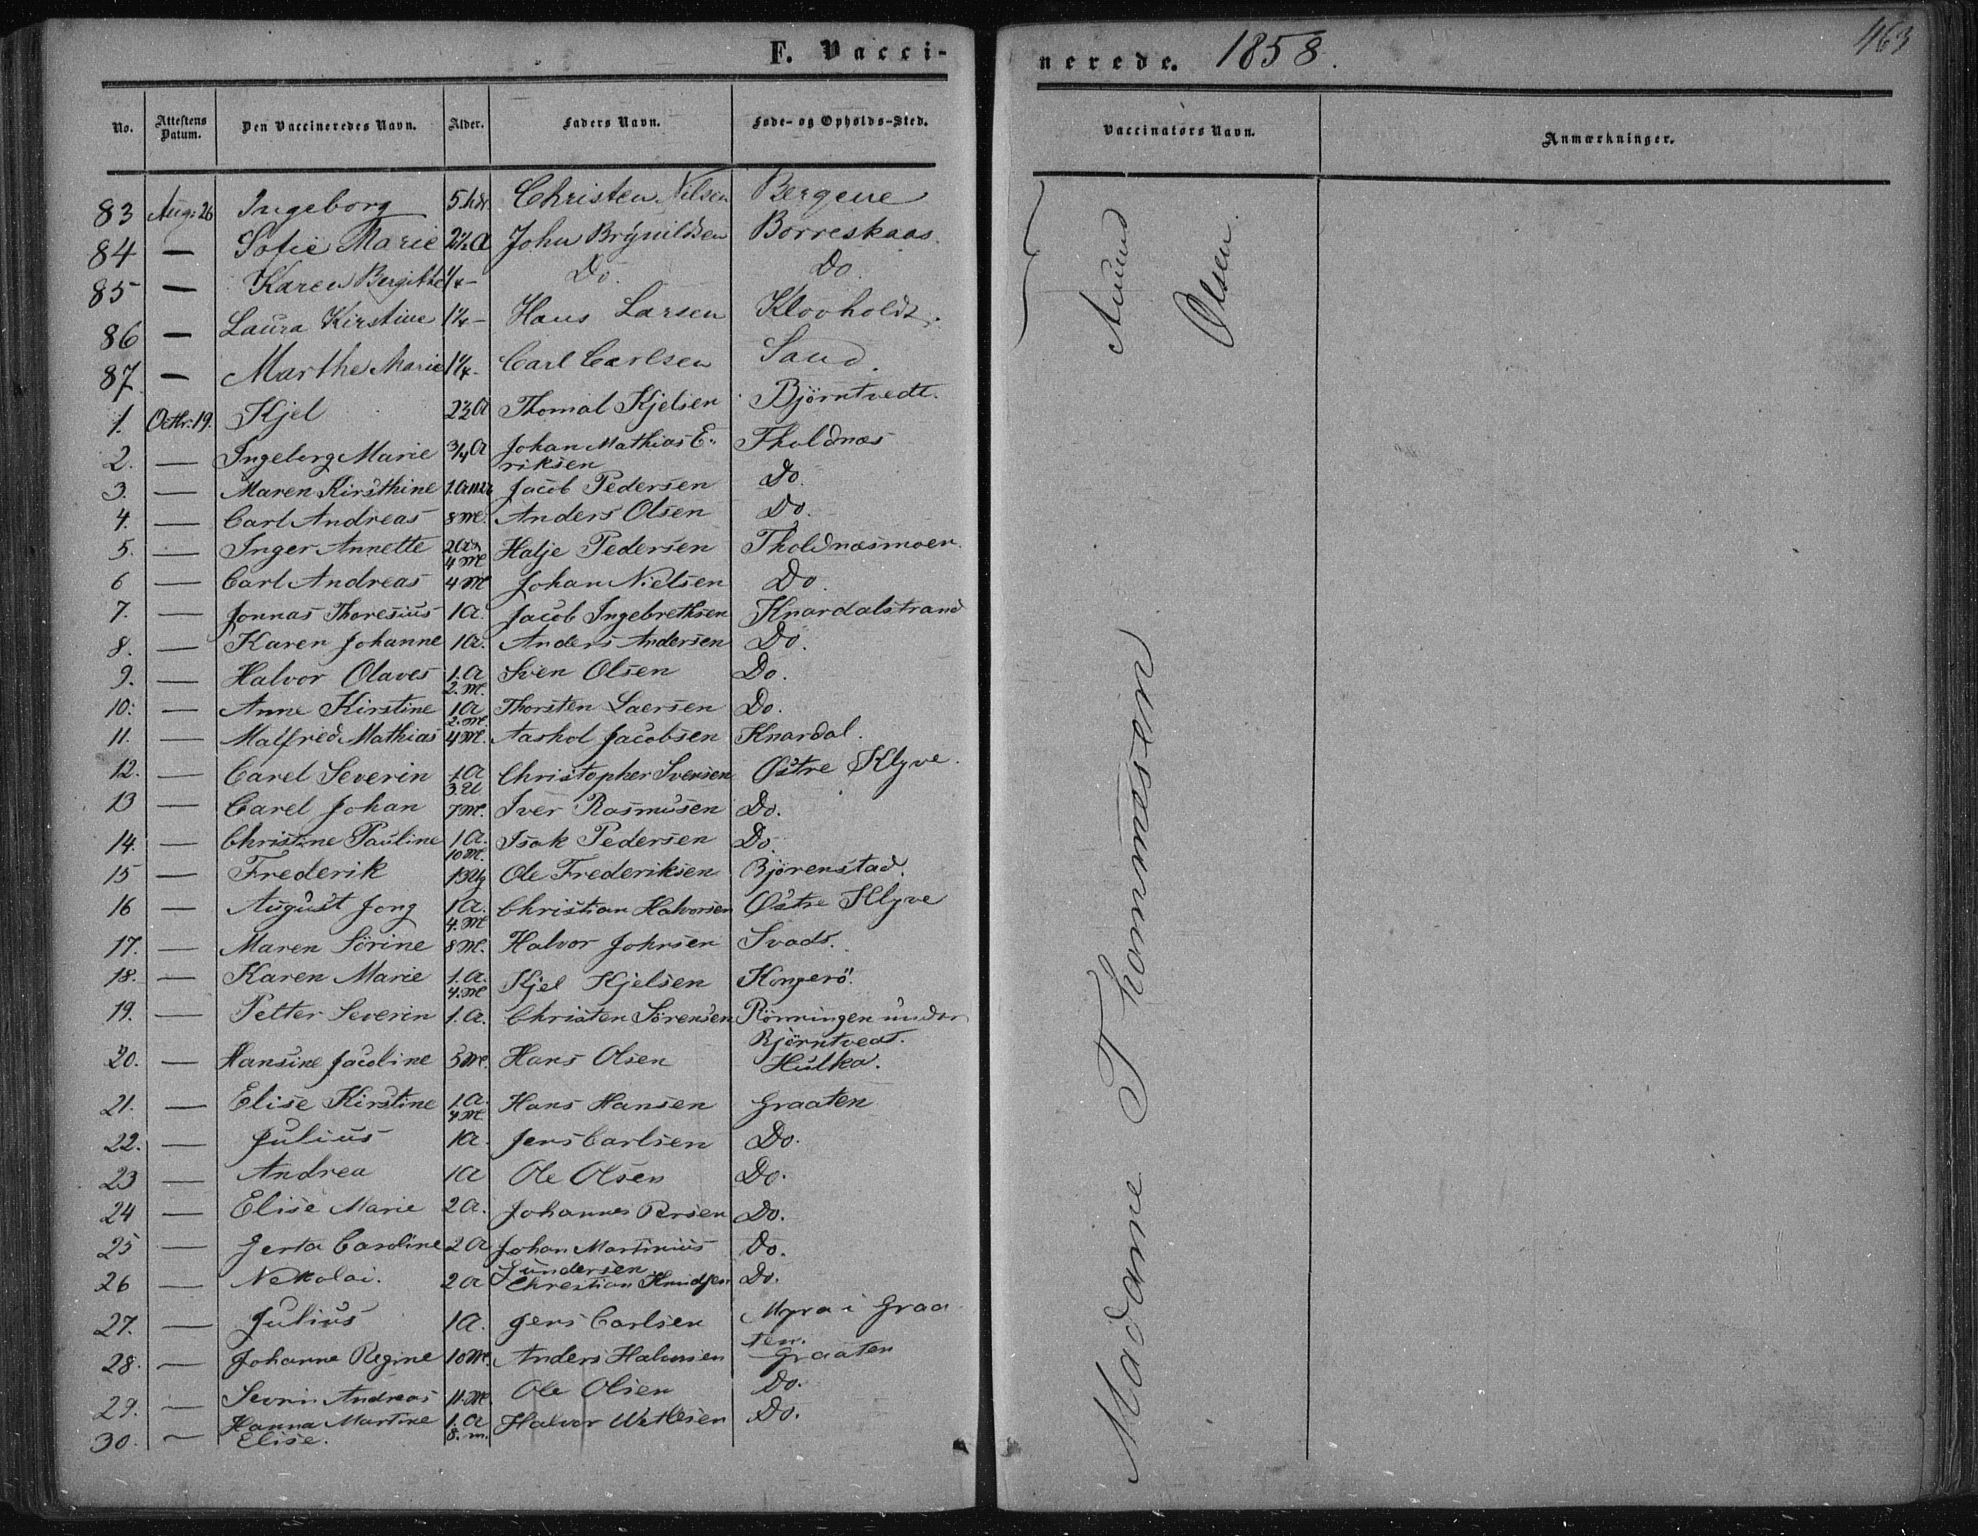 F. Vacci-
nerede. 1858.
463
No. Attestens Datum. Den Vaccineredes Navn. Alder. Faders Navn. Føde- og Opholds-Sted. Vaccinators Navn. Anmærkninger.
83 Aug: 26 Ingeborg Christen Nilsen Bergene
84 — Sofie Marie 2½ A John Brynildsen Borreskaas.
85 — Karen Bergitthe ¼ — Do. Do.
86 — Laura Kirstine 1¼ — Hans Larsen Klovholdt.
87. — Marthe Marie 1¼ - Carl Carlsen Sand.
Amund Olsen
1. Octbr: 19. Kjel 2½ A Thomas Kjelsen Björntvedt.
2. — Ingeborg Marie ¾ A Johan Mathias E-
riksen Tholdnæs
3. — Maren Kirsthine Jacob Pedersen Do.
4. — Carl Andreas 8 M. Anders Olsen Do.
5. — Inger Annette 4 M. Halje Pedersen Tholdnæsmoen.
6 — Carl Andreas 4 M Johan Nielsen Do
7. — Jonnas Thoresius 1 A. Jacob Ingebrethsen Knardalstrand
8. — Karen Johanne 1 A. Anders Andersen Do.
9. — Halvor Olaves 1. A 2. M. Sven Olsen Do.
10: — Anne Kirstine 1 A 2. M. Thorsten Laersen Do.
11. — Malfred Mathias 4 M. Aashol Jacobsen Knardal.
12. — Carel Severin 1 A Christopher Svensen Østre Klyve.
13 — Carel Johan 7 M. Iver Rasmusen Do.
14. — Christine Pauline 1 A. 10 M. Isak Pedersen Do.
15 — Frederik Ole Frederiksen Bjørenstad.
16 — August Jong 1 A. 4. M Christian Halvorsen Østre Klyve
17. — Maren Sörine 8 M. Halvor Johnsen Svads.
18. — Karen Marie 1. A. 4. M Kjel Kjelsen Kongerö.
19. — Petter Severin 1. A. Christen Sörensen Rönningen under
Björntvedt.
20. — Hansine Jacobine 5 M. Hans Olsen Hulka.
21. — Elise Kirstine 1 A. 4 M. Hans Hansen Graaten
22. — Julius 1 A. Jens Carlsen Do.
23 — Andrea 1 A Ole Olsen Do.
24 — Elise Marie 2 A. Johannes Persen Do.
25 — Jerta Caroline 2 A Johan Martinius
Gundersen Do.
26 — Nekolai. 2 A Christian Knudsen Do.
27. — Julius 1 A. Jens Carlsen Myra i Graa-
ten.
28. — Johanne Regine 10 M. Anders Halvorsen Graaten
29. — Sevrin Andreas 11. M. Ole Olsen Do.
30. — Hanna Martine
Elise. 1. A 8. m. Halvor Do.
Madame Thommesen